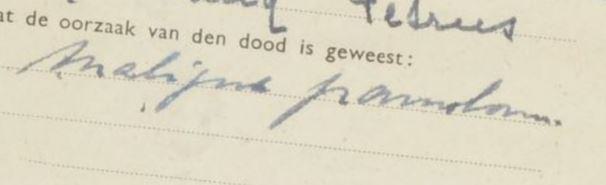 Petrus
at de oorzaak van den dood is geweest:
Maligne granuloom.